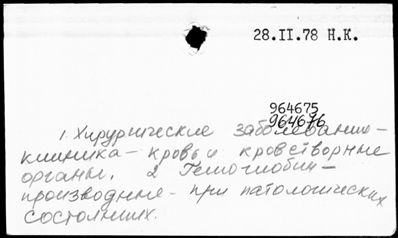 28.II.78 Н.К.
964675
964676
1. Хирургические заболевания –
клиника – кровь и кроветворные
органы. 2 Гемоглобин –
производные – при патологических
состояниях.